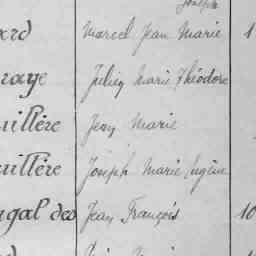 Joseph
ard Marcel Jean Marie 1
raye Julien Marie Théodore
uillère Jean Marie
uillère Joseph Marie Eugène
ugal des Jean François 10